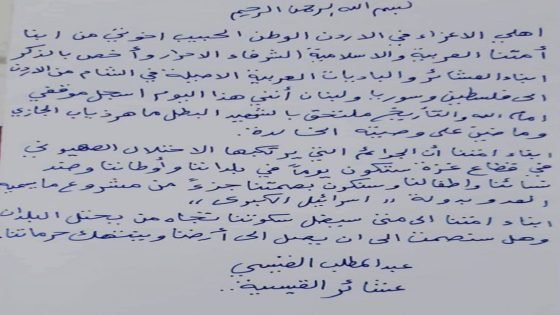 بسم الله الرحمن الرحيم
اهلي الاعزاء في الاردن الوطن الحبيب اخوتي من ابنا
أمتنا العربية والاسلامية الشرفاء الاحرار وأخص بالذكر
ابناء العشائر والباديات العربية الاصيلة في الشام من الاردن
الى فلسطين وسوريا ولبنان أنني هذا اليوم اسجل موقفي
امام الله والتأريخ ملتحق بالشهيد البطل ماهر ذياب الجازي
وماضين على وصيته الخالدة.
ابناء امتنا أن الجرائم التي يرتكبها الاحتلال الصهيوني
في قطاع غزة ستكون يوماً في بلداننا وأوطاننا وضد
نسائنا واطفالنا وستكون بصمتنا جزءً من مشروع ما يسميه
العدو بدولة ,, اسرائيل الكبرى ,,
ابناء امتنا الى متى سيظل سكوتنا تجاه من يحتل البلدان
وهل سنصمت الى ان يصل الى أرضنا وينتهك حرماتنا.
عبدالمطلب القيسي
عشائر القيسية ..